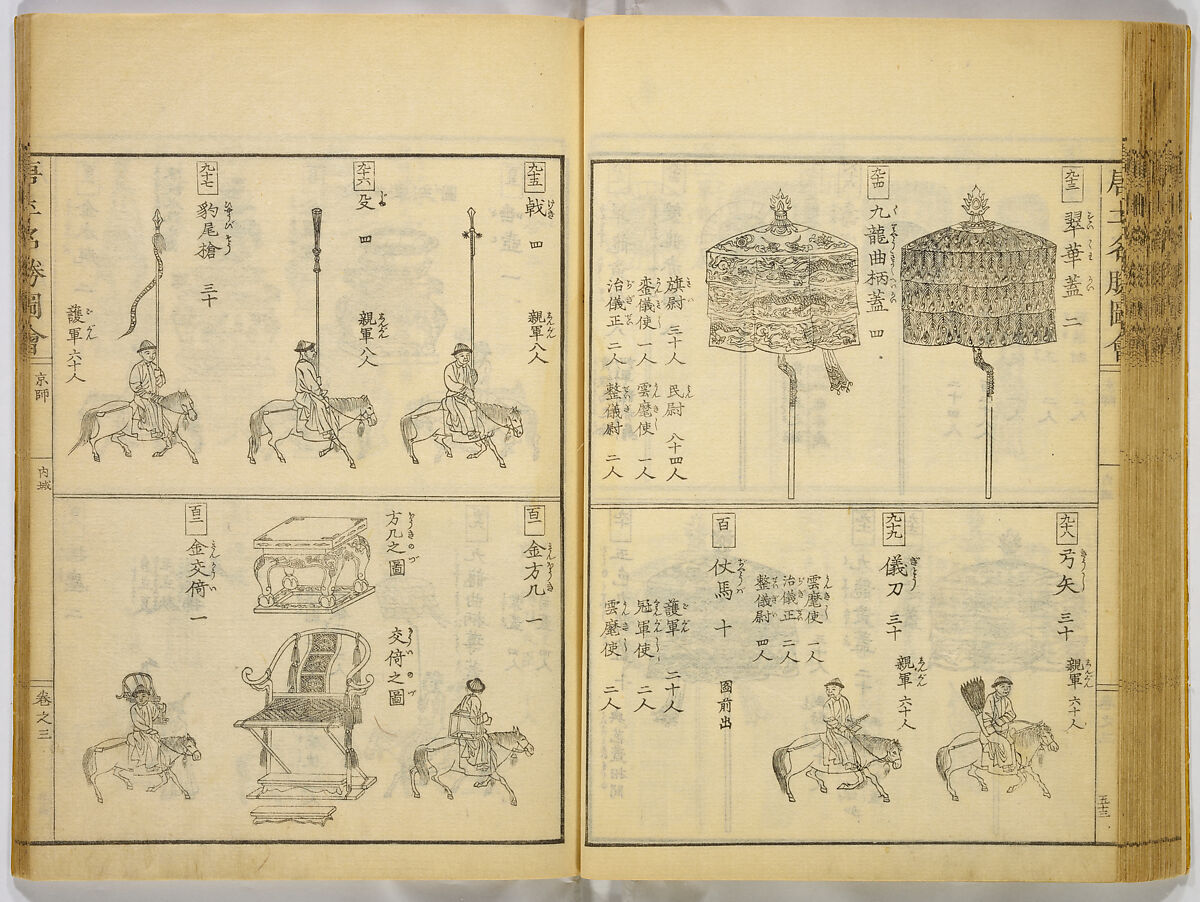 九十三
翠華蓋 二
九十四
九龍曲柄蓋 四
旗尉 三十人 民尉 八十四人
鑾儀使 一人 雲麾使 一人
治儀正 二人 整儀尉 二人
九十八
弓矢 三十
親軍 六十人
九十九
儀刀 三十
親軍 六十人
雲麾使 一人
治儀正 二人
整儀尉 四人
百
仗馬 十
圖前出
護軍 二十人
冠軍使 二人
雲麾使 二人
五十三
九十五
戟 四
親軍八人
九十六
殳 四
親軍八人
九十七
豹尾槍 三十
護軍 六十人
百一
金方几 一
方几之圖
交倚之圖
百二
金交倚 一
唐土名勝圖會
京師
内城
卷之三